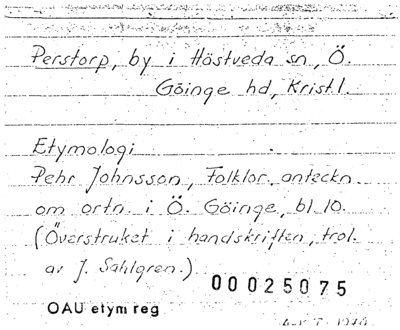 Perstorp, by i Hästveda sn, Ö.
Göinge hd, Kristl.
Etymologi
Pehr Johnsson, Folklor. anteckn.
om ortn. i Ö. Göinge, bl. 10.
(Överstruket i handskriften, trol.
av J. Sahlgren.)
00025075
OAU etym reg